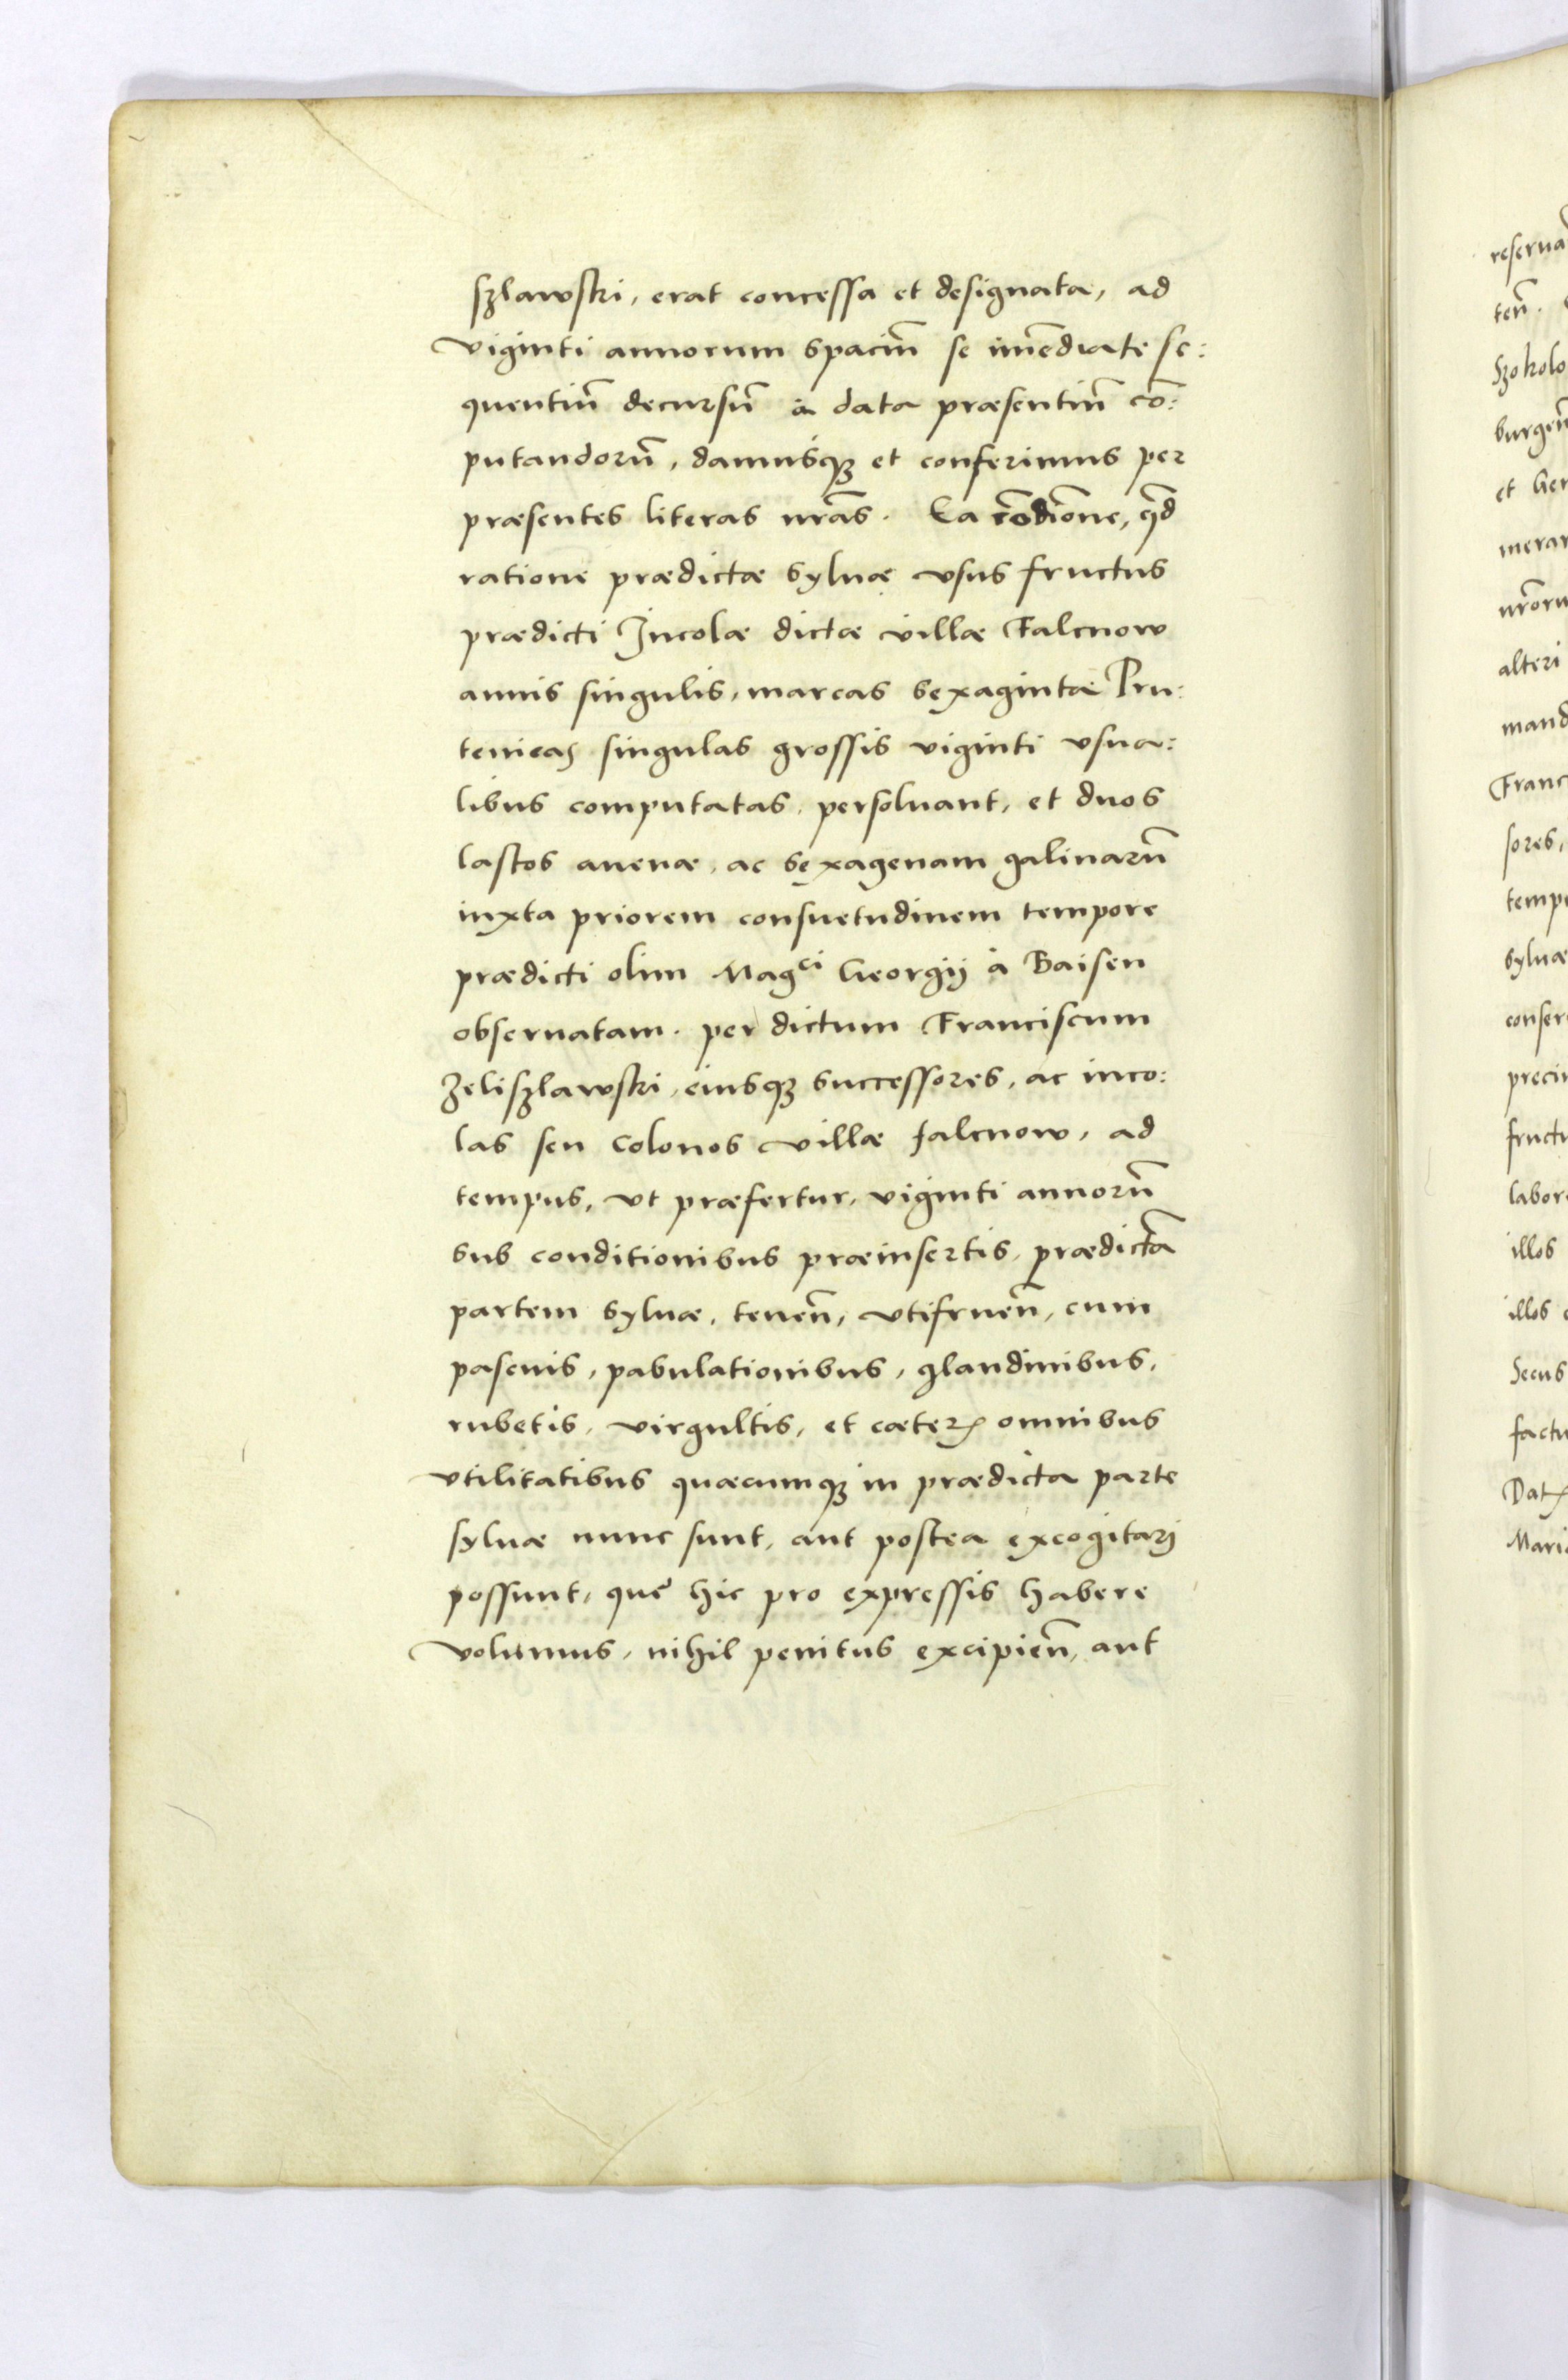 szlawski, erat concessa et designata, ad
viginti annorum spaciũ se im̃ediate se:
quentiũ decursũ a data præsentiũ cõ:
putandorũ, damusq₃ et conferimus per
præsentes literas nr̃as. Ea cõdic̃one, qd̃
ratione prædictæ sylvæ usus fructus
prædicti Incolæ dictæ villæ Falcnow
annis singulis, marcas sexaginta Pru:
tenicas singulas grossis viginti usua:
libus computatas, persoluant, et duos
lastos auenæ, ac sexagenam galinarũ
iuxta priorem consuetudinem tempore
prædicti olim Mag^ci Georgij à Baisen
obseruatam. per dictum Franciscum
Zeliszlawski, eiusq₃ successores, ac inco:
las seu colonos villæ falcnow, ad
tempus, ut præfertur, viginti annorũ
sub conditionibus præinsertis, prædictã
partem syluæ, teneñ, utifrueñ, cum
pascuis, pabulationibus, glandinibus,
rubetis, virgultis, et cæteꝶ omnibus
utilitatibus quæcumq₃ in prædicta parte
syluæ nunc sunt, aut postea excogitari
possunt, quę hic pro expressis habere
volumus, nihil penitus excipieñ, aut
reserua
teñ.
Szokolo
burgeñ
et Ger
merar
nr̃oru
alteri
mand
Franc
sores,
temp
syluæ
conser
preci
fructu
labor
illos
illos
Secus
factu
Datꝶ
Mari